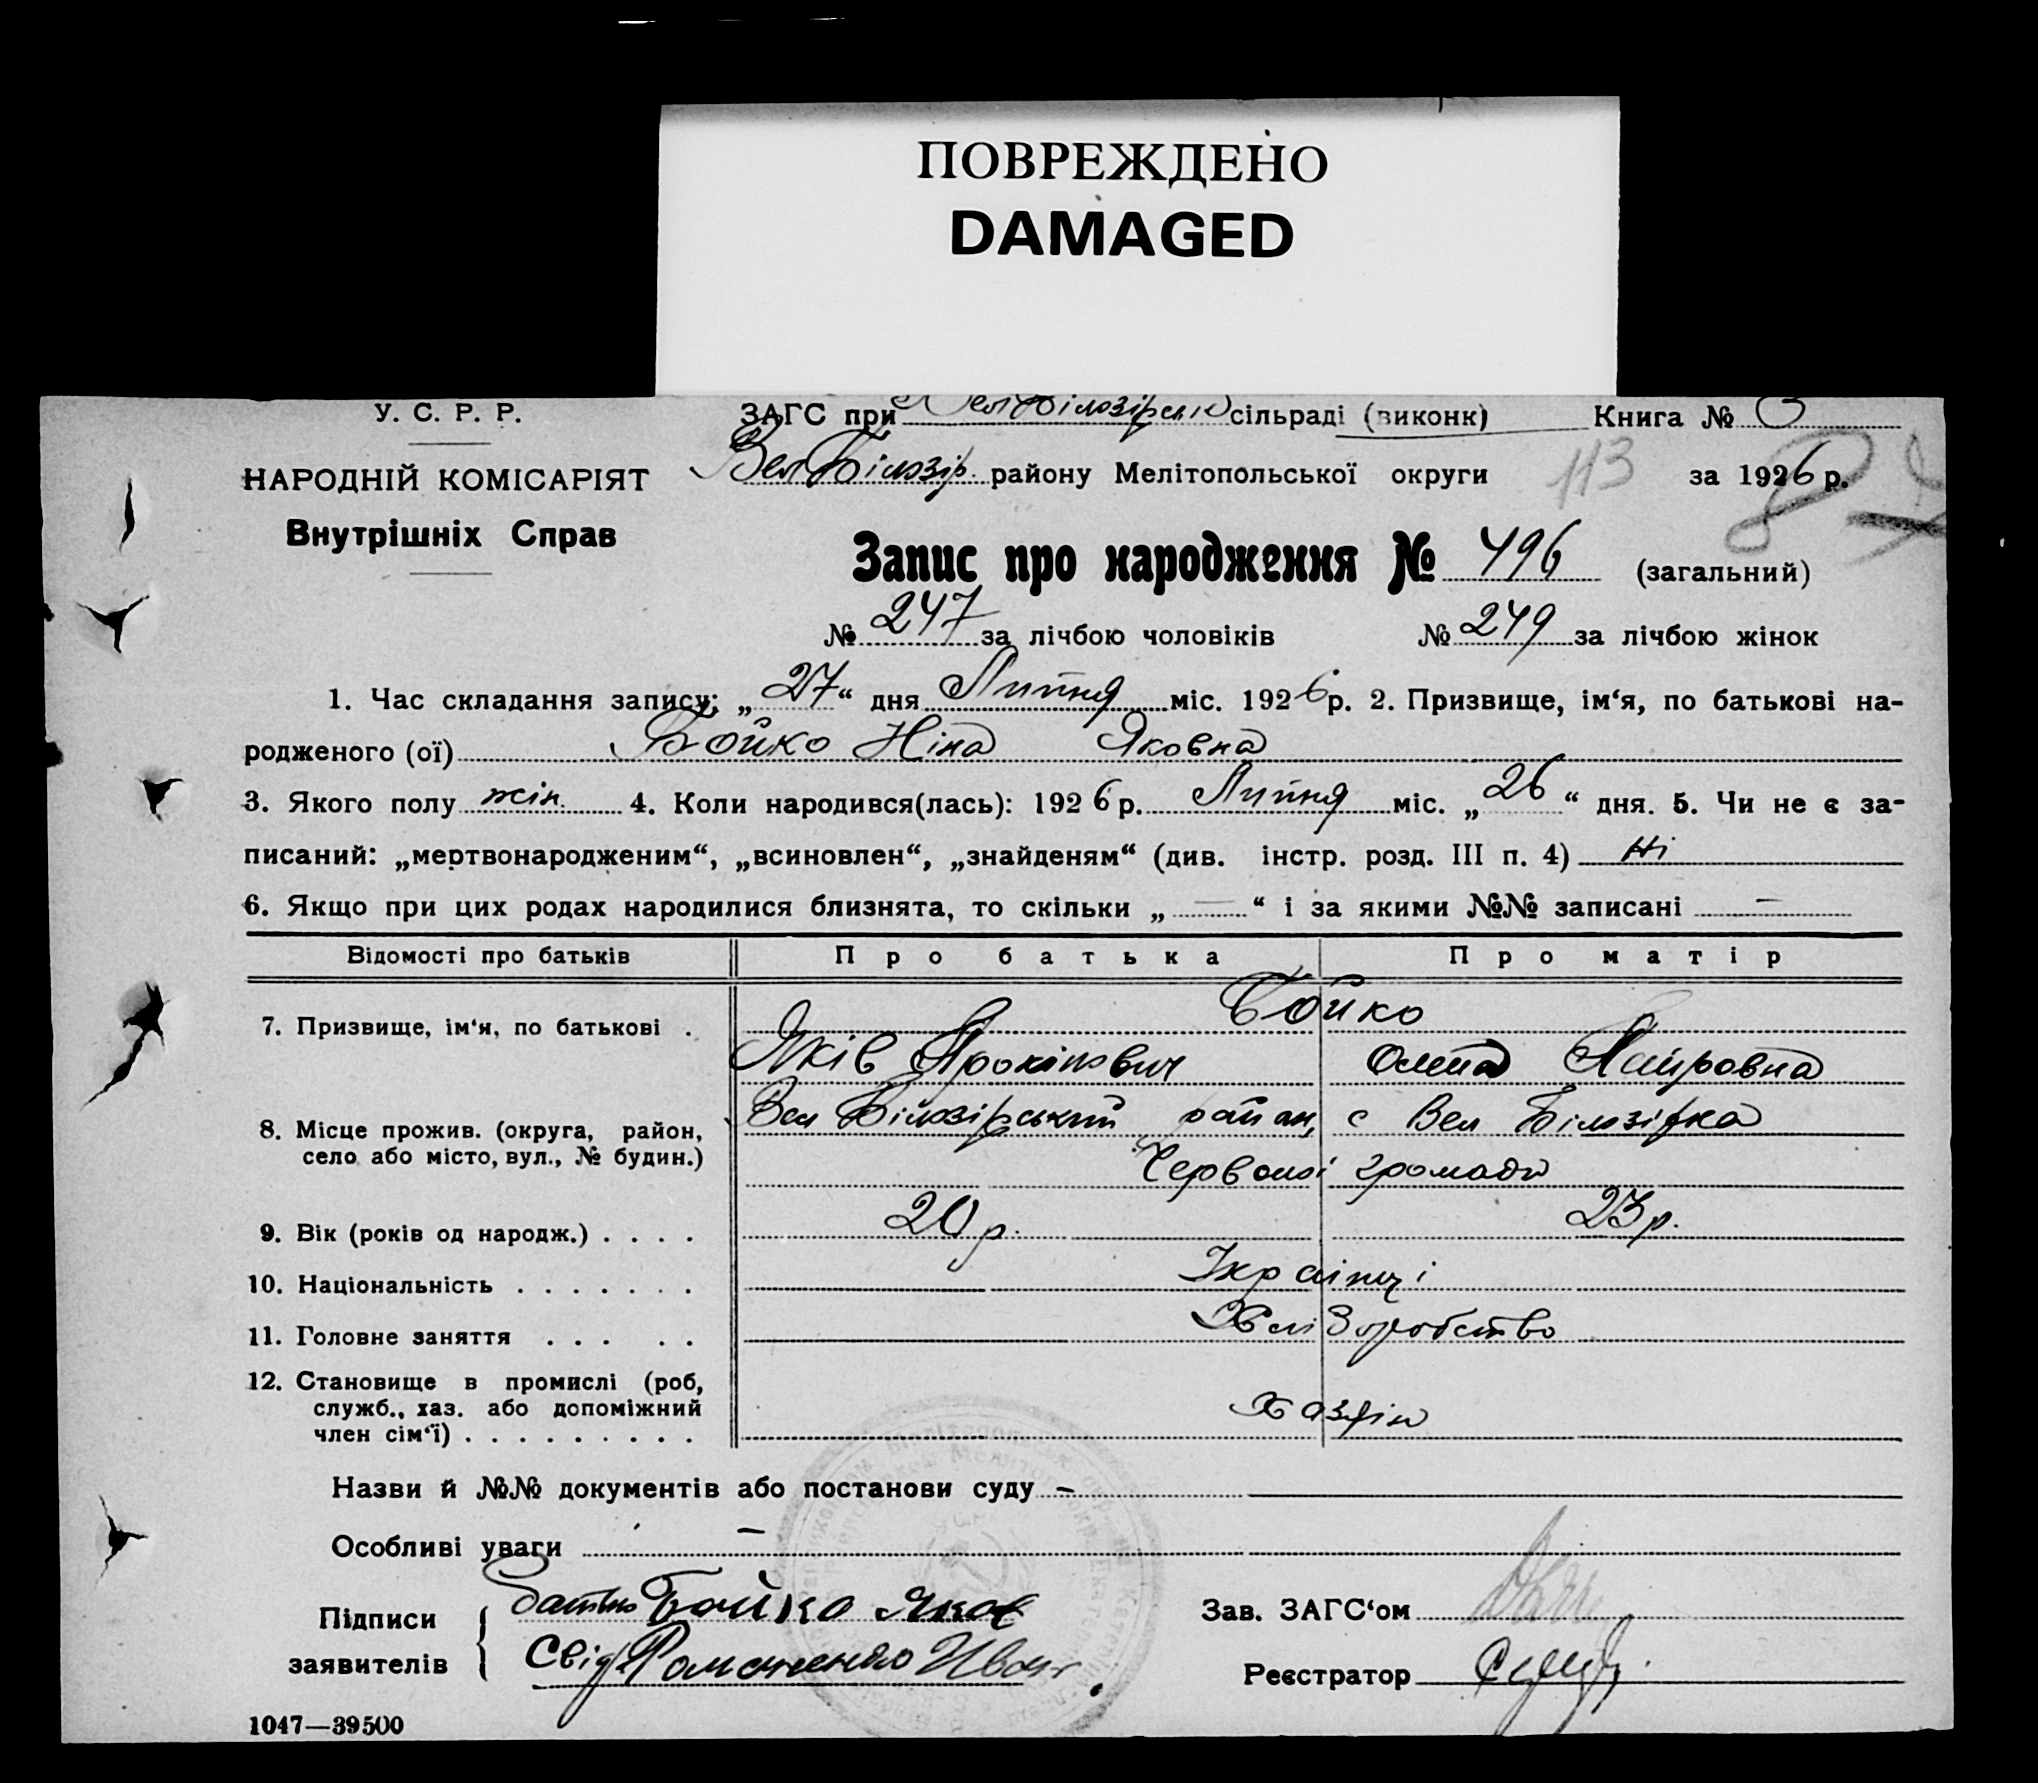 ПОВРЕЖДЕНО
DAMAGED
У. С. Р. Р. ЗАГС при Вел Білозірській сільраді (виконк) Книга № 3
НАРОДНІЙ КОМІСАРІЯТ Вел Білозір. району Мелітопольської округи 113 за 1926 р.
Внутрішніх Справ
Запис про народження № 496 (загальний)
№ 247 за лічбою чоловіків № 249 за лічбою жінок
1. Час складання запису: „27“ дня Липня міс. 1926 р. 2. Призвище, ім‘я, по батькові на-
родженого (ої) Бойко Ніна Яковна
3. Якого полу жін. 4. Коли народився(лась): 1926 р. Липня міс. „26“ дня. 5. Чи не є за-
писаний: „мертвонародженим“, „всиновлен“, „знайденям“ (див. інстр. розд. III п. 4) Ні
6. Якщо при цих родах народилися близнята, то скільки „—“ і за якими №№ записані —
Відомості про батьків Про батька Про матір
7. Призвище, ім‘я, по батькові . Бойко
Яків Прокіпович Олена Петровна
8. Місце прожив. (округа, район, Вел Білозірський район, с Вел Білозірка
село або місто, вул., № будин.) Червоної громади
9. Вік (років од народж.) . . . . 20 р. 23 р.
10. Національність . . . . . . . Українці
11. Головне заняття . . . . . Хліборобство
12. Становище в промислі (роб,
служб., хаз. або допоміжний Хазяїн
член сім‘ї) . . . . . . . . .
Назви й №№ документів або постанови суду –
Особливі уваги –
Підписи батько Бойко Яков Зав. ЗАГС‘ом
заявителів Свід. Романенко Иван. Реєстратор
1047—39500